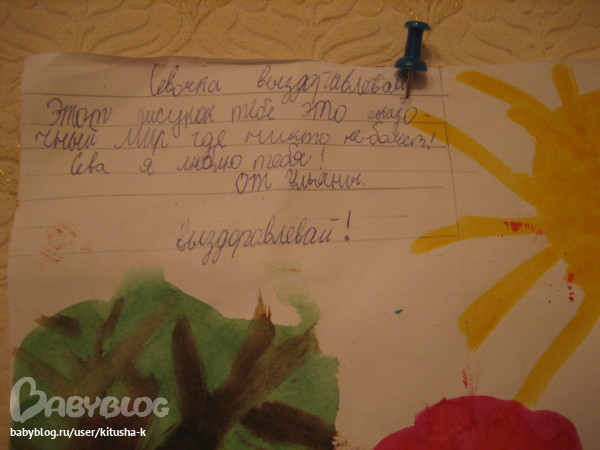 Севочка вызддравлевай
Этот рисунок тебе это сказо-
чный мир где никто не болеет!
Сева я люблю тебя!
от Ульяны.
выздоравлевай!
BABYBLOG
babyblog.ru/user/kitusha-k